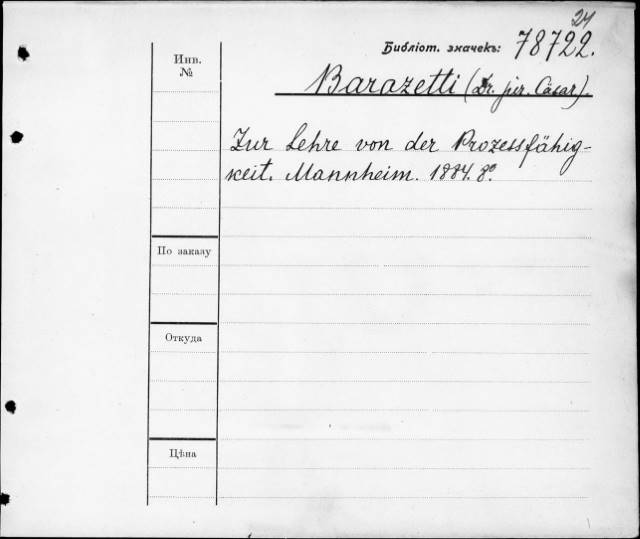 24
Библіот. значекъ: 78722.
Инв.
№
Barazetti (Dr. jur. Cäsar).
Zur Lehre von der Prozessfähig-
keit. Mannheim. 1884. 8°.
По заказу
Откуда
Цѣна